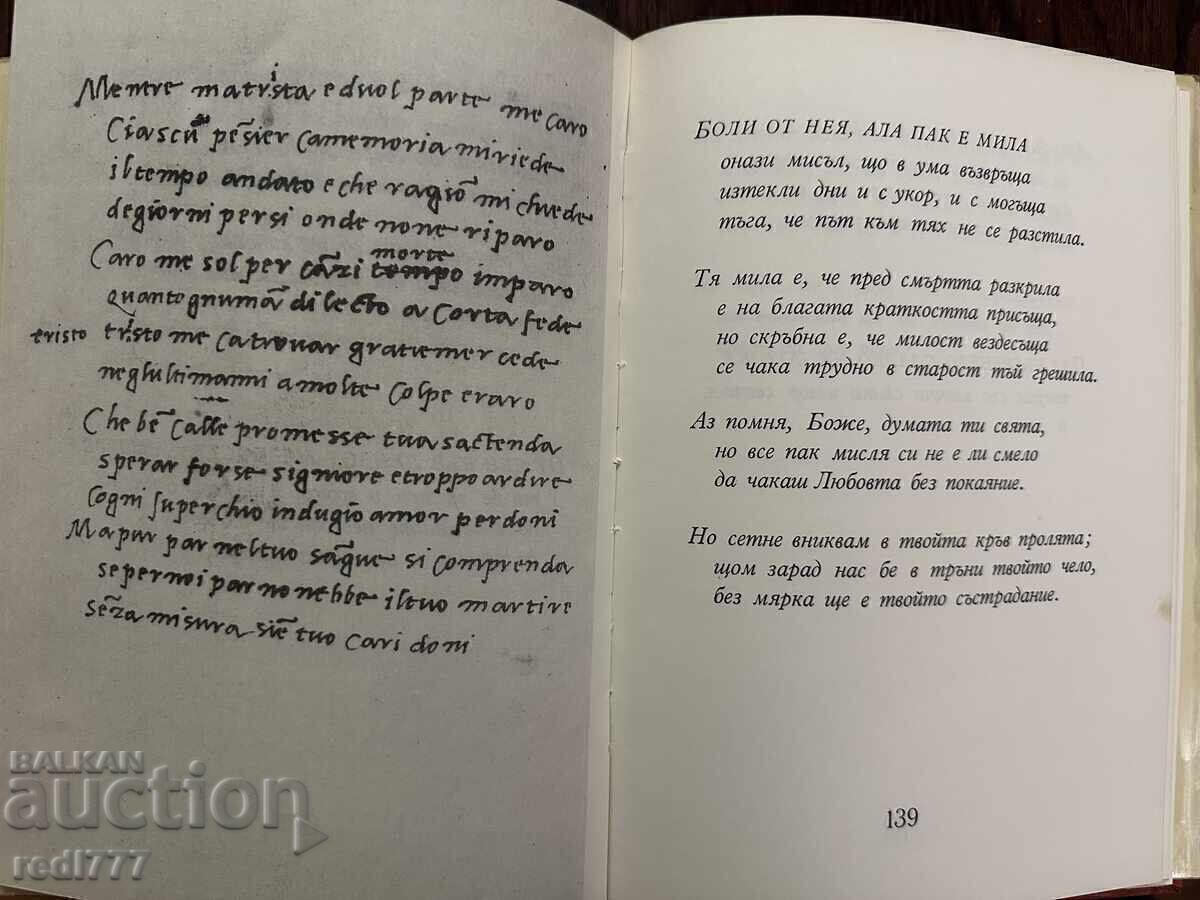 Mentre matrista e duol parte me caro
Ciascū pēsier camemoria miriede
iltempo andato e che ragiō mi chiede
degiorni persi onde none riparo
Caro me sol per cāzi tempo imparo
morte
quantognumā dilecto a corta fede
tristo tristo me catrouar gratiemer cede
neglultimanni amolte colpe eraro
Che bē calle promesse tua sactenda
sperar forse signiore etroppo ardire
cogni superchio indugio amor perdoni
Mapur par neltuo sāgue si comprenda
se per noi par nonebbe iltuo martire
sēza misura siē tuo cari doni
БОЛИ ОТ НЕЯ, АЛА ПАК Е МИЛА
онази мисъл, що в ума възвръща
изтекли дни и с укор, и с могъща
тъга, че път към тях не се разстила.
Тя мила е, че пред смъртта разкрила
е на благата краткостта присъща,
но скръбна е, че милост вездесъща
се чака трудно в старост тъй грешила.
Аз помня, Боже, думата ти свята,
но все пак мисля си не е ли смело
да чакаш Любовта без покаяние.
Но сетне вниквам в твойта кръв пролята;
щом зарад нас бе в тръни твойто чело,
без мярка ще е твойто състрадание.
139
BALKAN
auction
redl777